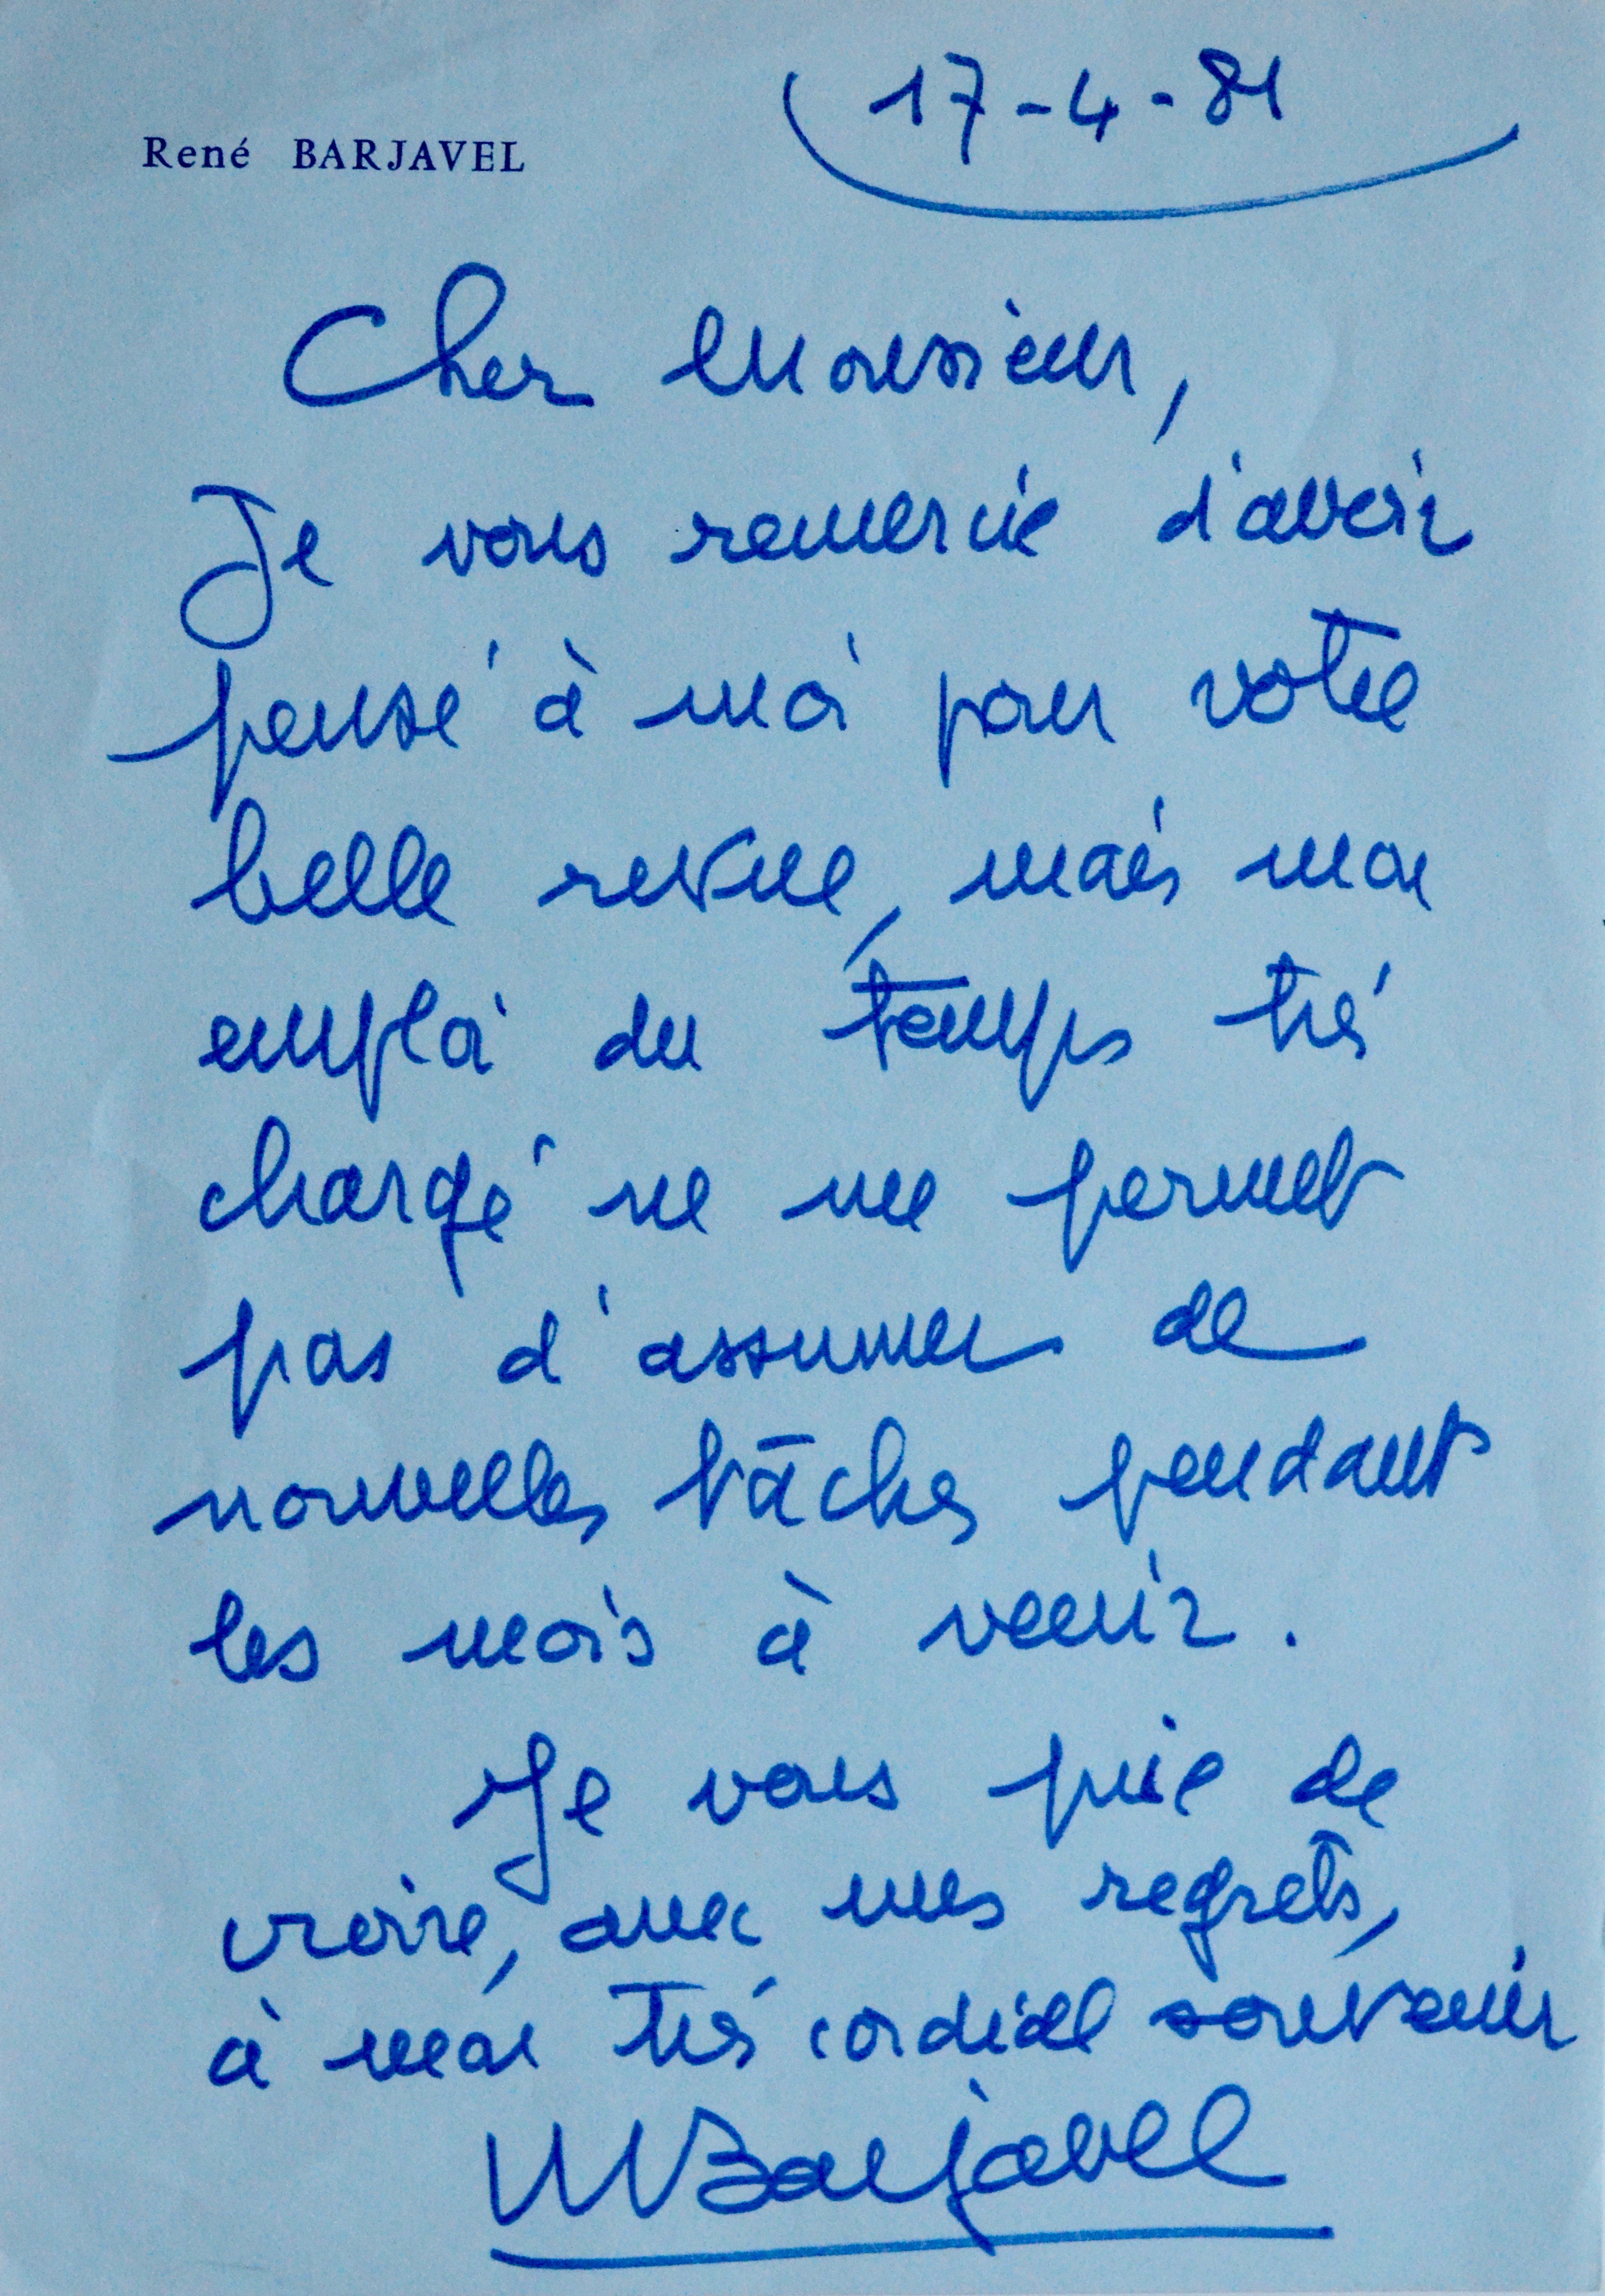 17-4-81
René BARJAVEL
Cher Monsieur,
Je vous remercie d'avoir
pensé à moi pour votre
belle revue, mais mon
emploi du temps très
chargé ne me permet
pas d'assumer de
nouvelles tâches pendant
les mois à venir.
Je vous prie de
croire, avec mes regrets,
à mon très cordial souvenir
Barjavel